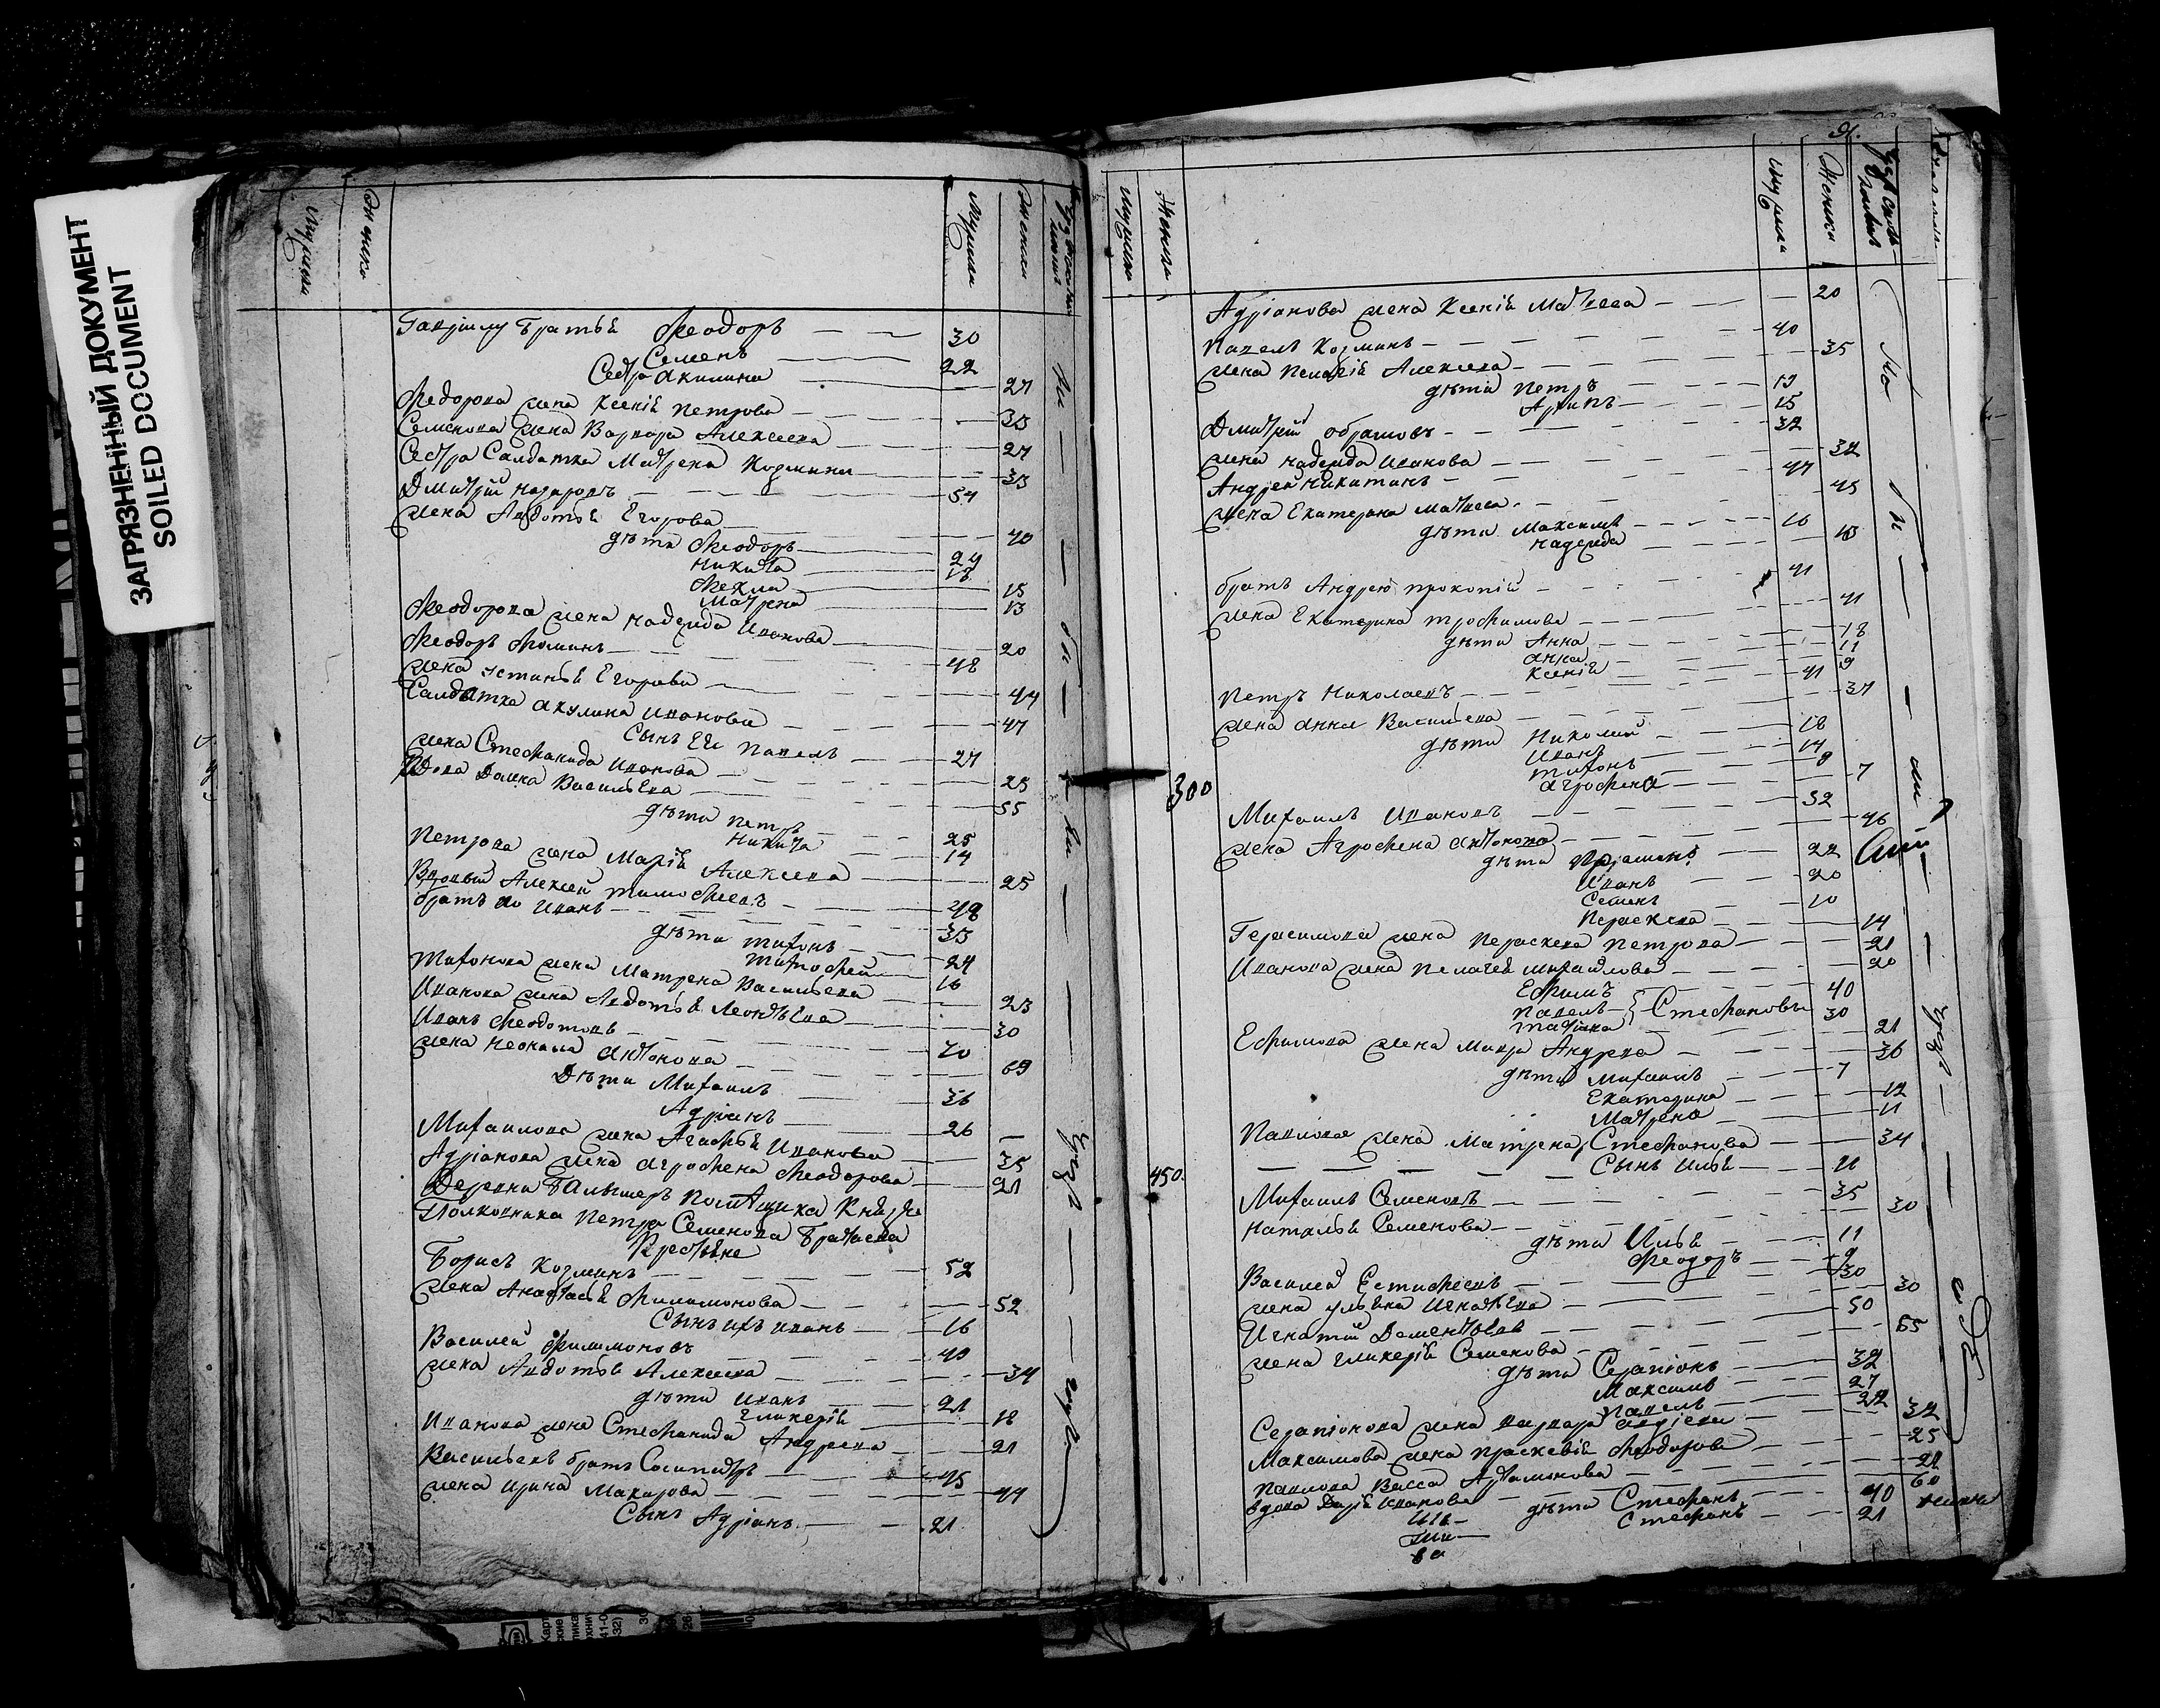 ЗАГРЯЗНЕННЫЙ ДОКУМЕНТ
SOILED DOCUMENT
Мужска
Женска
Мужска
Женска
братья Ѳеодоръ 30
Семенъ 22
Сестра Акилина 27
Ѳедорова жена Ксенія Петрова 33
Семенова жена Варвара Алексеева 27
Сестра Салдатка Матрена Козмина 33
Дмитрій Назаровъ 54
жена Авдотья Егорова 40
дѣти Ѳеодоръ 24
Никита 18
Ѳекла 15
Матрена 13
Ѳеодорова жена Надежда Иванова 20
Ѳеодоръ Ѳоминъ 48
жена Устинья Егорова 44
Салдатка Акулина Иванова 47
Сынъ Ея Павелъ 27
жена Стефанида Иванова 25
Вдова Домна Васильева 55
дѣти Петръ 25
Никита 14
Петрова жена Марія Алексеева 25
Вдовый Алексей Тимофеевъ 48
братъ его Иванъ 33
дѣти Тихонъ 24
Тимофей 16
Тихонова жена Матрена Васильева 23
Иванова жена Авдотья Леонтьева 30
Иванъ Ѳеодотовъ 70
жена Неонила Антонова 69
Дѣти Михаилъ 36
Адріанъ 26
Михаилова жена Агафья Иванова 35
Адріанова жена Агрофена Ѳеодорова 21
Деревни Помѣщика Князя
Полковника Петра Семенова
Крестьяне
Борисъ Козминъ 52
жена Анастасья Филимонова 52
Сынъ ихъ Иванъ 16
Василей Филимоновъ 40
жена Авдотья Алексеева 34
дѣти Иванъ 21
Гликерія 18
Иванова жена Стефанида Андреева 21
Васильевъ братъ Сосипатръ 45
жена Ирина Макарова 44
Сынъ Адріанъ 21
Мужска
Женска
Мужска
Женска
Адріанова жена Ксенія Матвеева 20
Павелъ Козминъ 40
жена Пелагія Алексеева 35
дѣти Петръ 19
Архипъ 15
Дмитрій Абрамовъ 32
жена Надежда Иванова 32
Андрей Никитинъ 47
жена Екатерина Матвеева 45
дѣти Максимъ 16
Надежда 10
братъ Андрею Прокопій 41
жена Екатерина Трофимова 41
дѣти Анна 18
Анна 11
Ксенія 9
Петръ Николаевъ 41
жена Анна Васильева 37
дѣти Николай 18
Иванъ 14
Тихонъ 9
Агрофена 7
300
Михаилъ Ивановъ 52
жена Агрофена Антонова 46
дѣти 22
Иванъ 20
Семенъ 10
Пераскева 14
Герасимова жена Пераскева Петрова 21
Иванова жена Пелагея Михайлова 20
Ефимъ 40
Павелъ Стефановы 30
Татіана 21
Ефимова жена Мавра Андреева 36
дѣти Михаилъ 7
Екатерина 12
Матрена 11
Павлова жена Матрена Стефанова 34
Сынъ Илья 11
450.
Михаилъ Семеновъ 35
Наталья Семенова 30
дѣти Илья 11
Ѳеодоръ 9
Василей Естифеевъ 30
жена Ульяна Игнатьева 30
Игнатій Доментьевъ 50
жена Гликерія Семенова 55
дѣти Серапіонъ 32
Максимъ 27
Павелъ 22
Серапіонова жена Варвара Андреева 32
Максимова жена Праскевія Ѳеодорова 25
Павлова Васса Артамонова 21
вдова Дарія Иванова 60
дѣти Стефанъ 40
Стефанъ 21